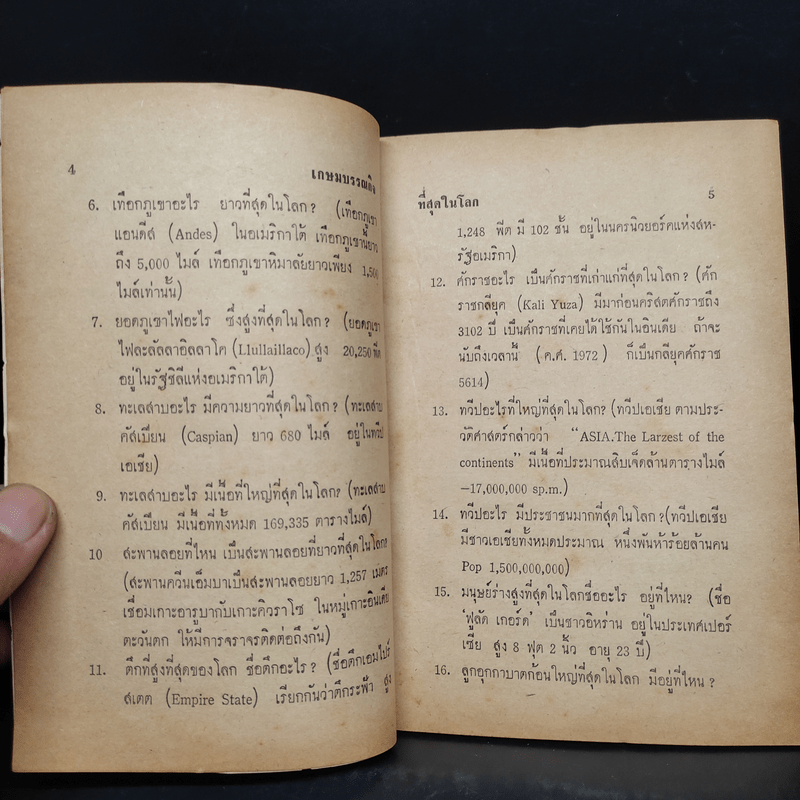 4
เกษมบรรณกิจ
6. เทือกภูเขาอะไร ยาวที่สุดในโลก? (เทือกภูเขา
แอนดีส (Andes) ในอเมริกาใต้ เทือกภูเขานี้ยาว
ถึง 5,000 ไมล์ เทือกภูเขาหิมาลัยยาวเพียง 1,500
ไมล์เท่านั้น)
7. ยอดภูเขาไฟอะไร ซึ่งสูงที่สุดในโลก? (ยอดภูเขา
ไฟละลัลลาอิลลาโค (Llullaillaco) สูง 20,250 ฟีต
อยู่ในรัฐชิลีแห่งอเมริกาใต้)
8. ทะเลสาบอะไร มีความยาวที่สุดในโลก? (ทะเลสาบ
คัสเบียน (Caspian) ยาว 680 ไมล์ อยู่ในทวีป
เอเซีย)
9. ทะเลสาบอะไร มีเนื้อที่ใหญ่ที่สุดในโลก? (ทะเลสาบ
คัสเบียน มีเนื้อที่ทั้งหมด 169,335 ตารางไมล์)
10 สะพานลอยที่ไหน เป็นสะพานลอยที่ยาวที่สุดในโลก?
(สะพานควีนเอ็มบาเป็นสะพานลอยยาว 1,257 เมตร
เชื่อมเกาะอารูบากับเกาะคิวราโซ ในหมู่เกาะอินเดีย
ตะวันตก ให้มีการจราจรติดต่อถึงกัน)
11. ตึกที่สูงที่สุดของโลก ชื่อตึกอะไร? (ชื่อตึกเอมไปร์
สเตต (Empire State) เรียกกันว่าตึกระฟ้า สูง
ที่สุดในโลก
5
1,248 ฟีต มี 102 ชั้น อยู่ในนครนิวยอร์คแห่งสห-
รัฐอเมริกา)
12. ศักราชอะไร เป็นศักราชที่เก่าแก่ที่สุดในโลก? (ศัก
ราชกลียุค (Kali Yuza) มีมาก่อนคริสตศักราชถึง
3102 ปี เป็นศักราชที่เคยได้ใช้กันในอินเดีย ถ้าจะ
นับถึงเวลานี้ (ค.ศ. 1972) ก็เป็นกลียุคศักราช
5614)
13. ทวีปอะไรที่ใหญ่ที่สุดในโลก? (ทวีปเอเซีย ตามประ-
วัติศาสตร์กล่าวว่า "ASIA.The Larzest of the
continents" มีเนื้อที่ประมาณสิบเจ็ดล้านตารางไมล์
—17,000,000 sp.m.)
14. ทวีปอะไร มีประชาชนมากที่สุดในโลก?(ทวีปเอเซีย
มีชาวเอเซียทั้งหมดประมาณ หนึ่งพันห้าร้อยล้านคน
Pop 1,500,000,000)
15. มนุษย์ร่างสูงที่สุดในโลกชื่ออะไร อยู่ที่ไหน? (ชื่อ
'ฟูลัด เกอร์ด' เป็นชาวอิหร่าน อยู่ในประเทศเปอร์
เซีย สูง 8 ฟุต 2 นิ้ว อายุ 23 ปี)
16. ลูกอุกกาบาตก้อนใหญ่ที่สุดในโลก มีอยู่ที่ไหน?